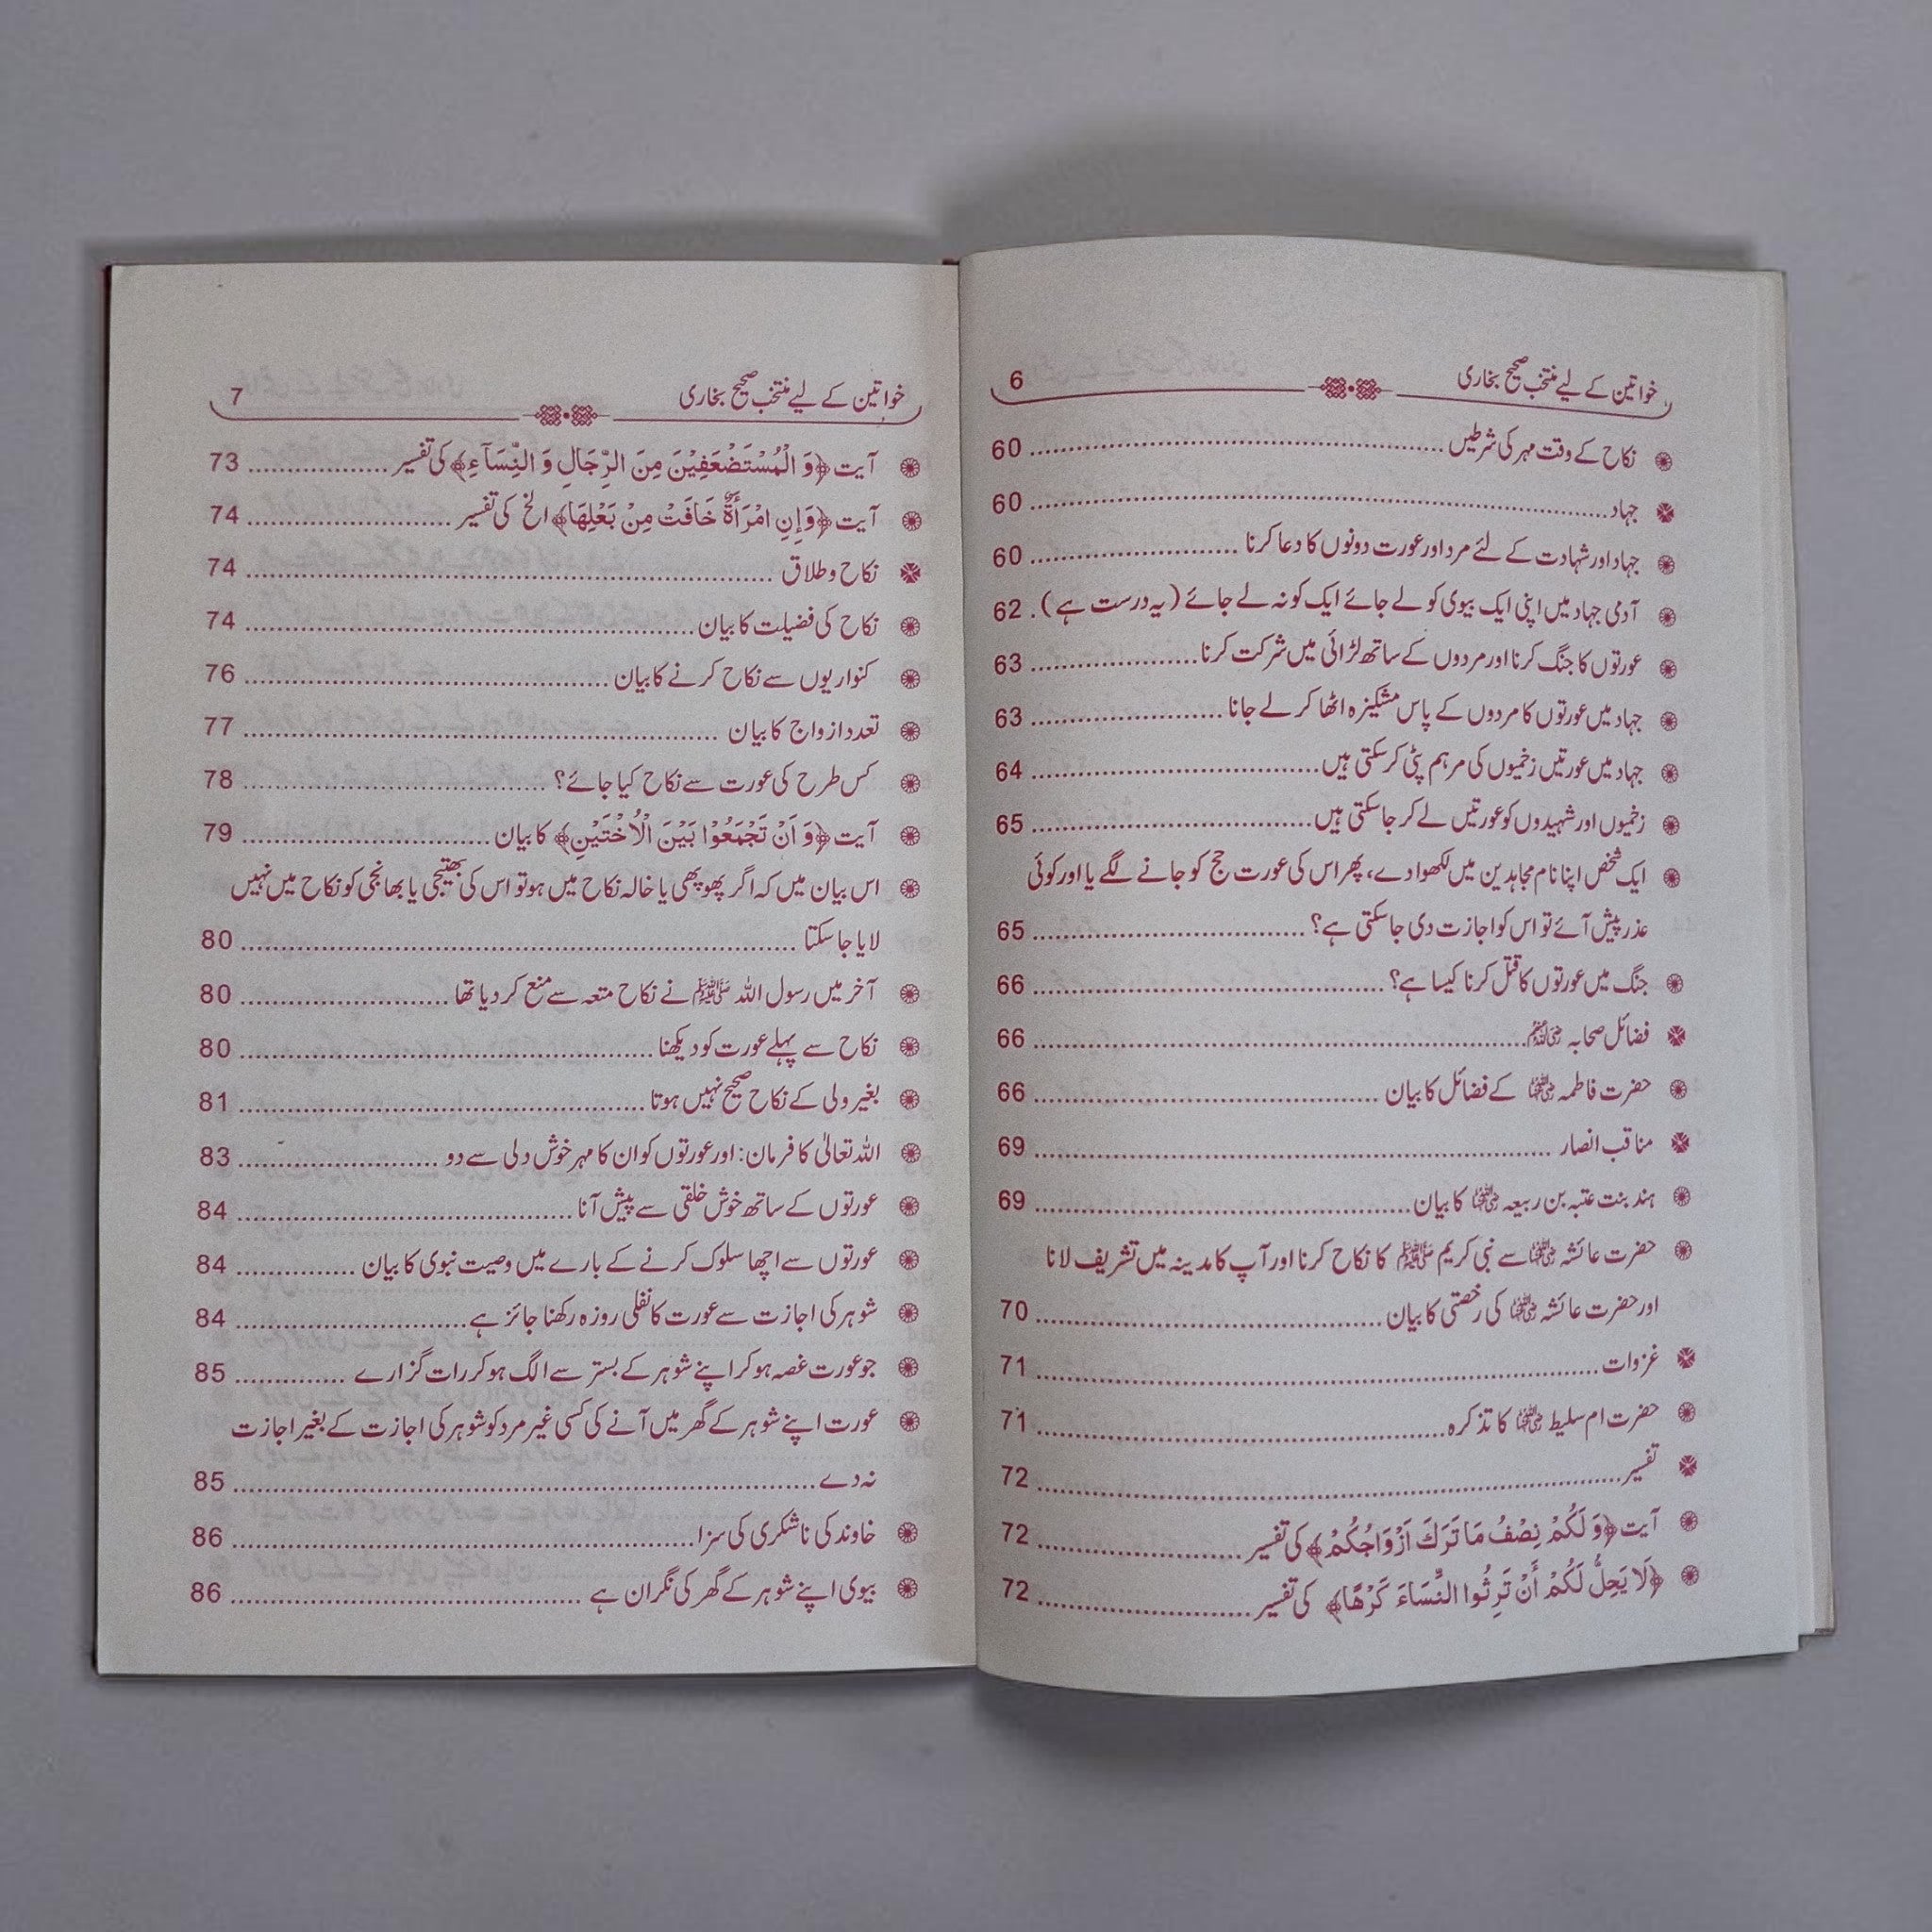 خواتین کے لیے منتخب صحیح بخاری 6
نکاح کے وقت مہر کی شرطیں 60
جہاد 60
جہاد اور شہادت کے لئے مرد اور عورت دونوں کا دعا کرنا 60
آدمی جہاد میں اپنی ایک بیوی کو لے جائے ایک کو نہ لے جائے (یہ درست ہے). 62
عورتوں کا جنگ کرنا اور مردوں کے ساتھ لڑائی میں شرکت کرنا 63
جہاد میں عورتوں کا مردوں کے پاس مشکیزہ اٹھا کر لے جانا 63
جہاد میں عورتیں زخمیوں کی مرہم پٹی کر سکتی ہیں 64
زخمیوں اور شہیدوں کو عورتیں لے کر جا سکتی ہیں 65
ایک شخص اپنا نام مجاہدین میں لکھوا دے، پھر اس کی عورت حج کو جانے لگے یا اور کوئی
عذر پیش آئے تو اس کو اجازت دی جا سکتی ہے؟ 65
جنگ میں عورتوں کا قتل کرنا کیسا ہے؟ 66
فضائل صحابہ رضی اللہ عنہم 66
حضرت فاطمہ رضی اللہ عنہا کے فضائل کا بیان 66
مناقب انصار 69
ہند بنت عتبہ بن ربیعہ رضی اللہ عنہا کا بیان 69
حضرت عائشہ رضی اللہ عنہا سے نبی کریم ﷺ کا نکاح کرنا اور آپ کا مدینہ میں تشریف لانا
اور حضرت عائشہ رضی اللہ عنہا کی رخصتی کا بیان 70
غزوات 71
حضرت ام سلیط رضی اللہ عنہا کا تذکرہ 71
تفسیر 72
آیت ﴿وَ لَكُمْ نِصْفُ مَا تَرَكَ اَزْوَاجُكُمْ﴾ کی تفسیر 72
﴿لَا يَحِلُّ لَكُمْ أَنْ تَرِثُوا النِّسَاءَ كَرْهًا﴾ کی تفسیر 72
خواتین کے لیے منتخب صحیح بخاری 7
آیت ﴿وَ الْمُسْتَضْعَفِيْنَ مِنَ الرِّجَالِ وَ النِّسَآءِ﴾ کی تفسیر 73
آیت ﴿وَإِنِ امْرَأَةٌ خَافَتْ مِنْ بَعْلِهَا﴾ الخ کی تفسیر 74
نکاح و طلاق 74
نکاح کی فضیلت کا بیان 74
کنواریوں سے نکاح کرنے کا بیان 76
تعدد ازواج کا بیان 77
کس طرح کی عورت سے نکاح کیا جائے؟ 78
آیت ﴿وَ اَنْ تَجْمَعُوْا بَيْنَ الْاُخْتَيْنِ﴾ کا بیان 79
اس بیان میں کہ اگر پھوپھی یا خالہ نکاح میں ہو تو اس کی بھتیجی یا بھانجی کو نکاح میں نہیں
لایا جا سکتا 80
آخر میں رسول اللہ ﷺ نے نکاح متعہ سے منع کر دیا تھا 80
نکاح سے پہلے عورت کو دیکھنا 80
بغیر ولی کے نکاح صحیح نہیں ہوتا 81
اللہ تعالیٰ کا فرمان: اور عورتوں کو ان کا مہر خوش دلی سے دو 83
عورتوں کے ساتھ خوش خلقی سے پیش آنا 84
عورتوں سے اچھا سلوک کرنے کے بارے میں وصیت نبوی کا بیان 84
شوہر کی اجازت سے عورت کا نفلی روزہ رکھنا جائز ہے 84
جو عورت غصہ ہو کر اپنے شوہر کے بستر سے الگ ہو کر رات گزارے 85
عورت اپنے شوہر کے گھر میں آنے کی کسی غیر مرد کو شوہر کی اجازت کے بغیر اجازت
نہ دے 85
خاوند کی ناشکری کی سزا 86
بیوی اپنے شوہر کے گھر کی نگران ہے 86